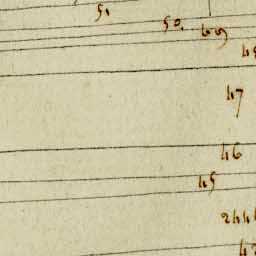 51
50.
49
48
47
46
45